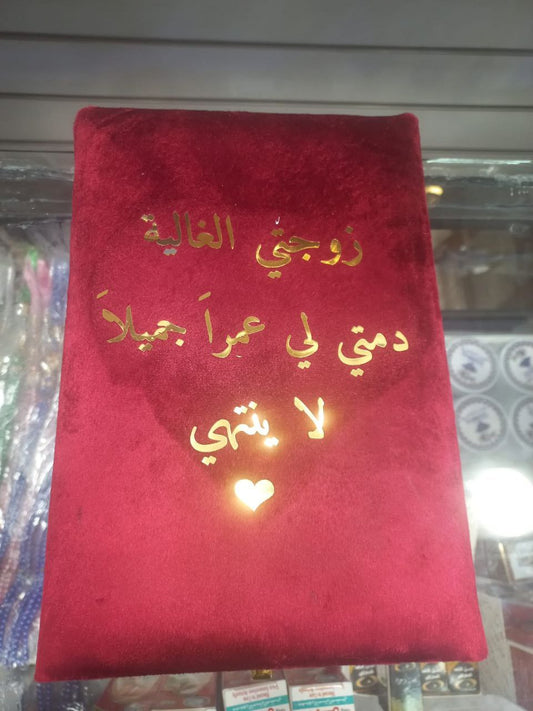 زوجتي الغالية
دمتي لي عمراَ جميلاَ
لا ينتهي